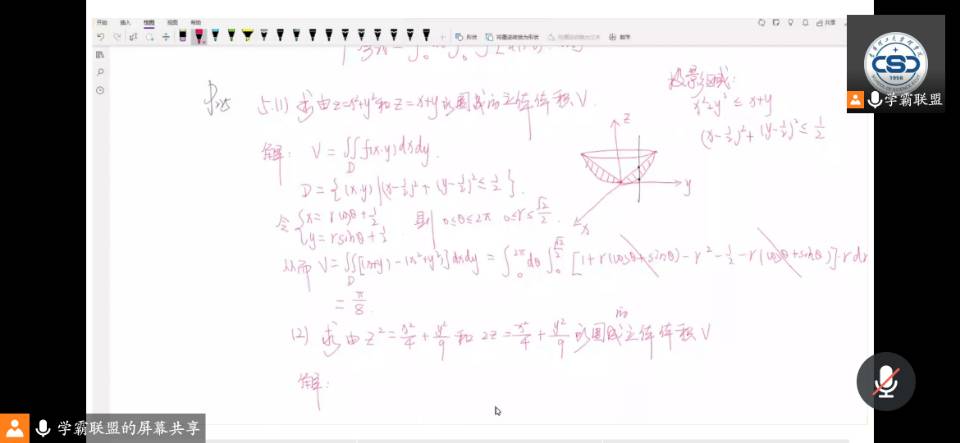 开始 插入 绘图 视图 帮助
形状 将墨迹转换为形状 将墨迹转换为文本 数学
共享
P₂₅ 5.(1) 求由z=x²+y²和z=x+y所围成的立体体积V.
投影区域:
x²+y² ≤ x+y
(x-½)²+(y-½)² ≤ ½
解: V=∬_D f(x,y)dxdy.
D={(x,y)|(x-½)²+(y-½)²≤½}.
令{x=rcosθ+½ y=rsinθ+½ 则 0≤θ≤2π 0≤r≤√2/2.
z
y
x
从而 V=∬_D[(x+y)-(x²+y²)]dxdy=∫₀^{2π}dθ∫₀^{√2/2}[1+r(cosθ+sinθ)-r²-½-r(cosθ+sinθ)]·rdr
=π/8.
(2) 求由z²=x²/4+y²/9和2z=x²/4+y²/9所围成的立体体积V
解:
学霸联盟
CSD
1956
学霸联盟的屏幕共享